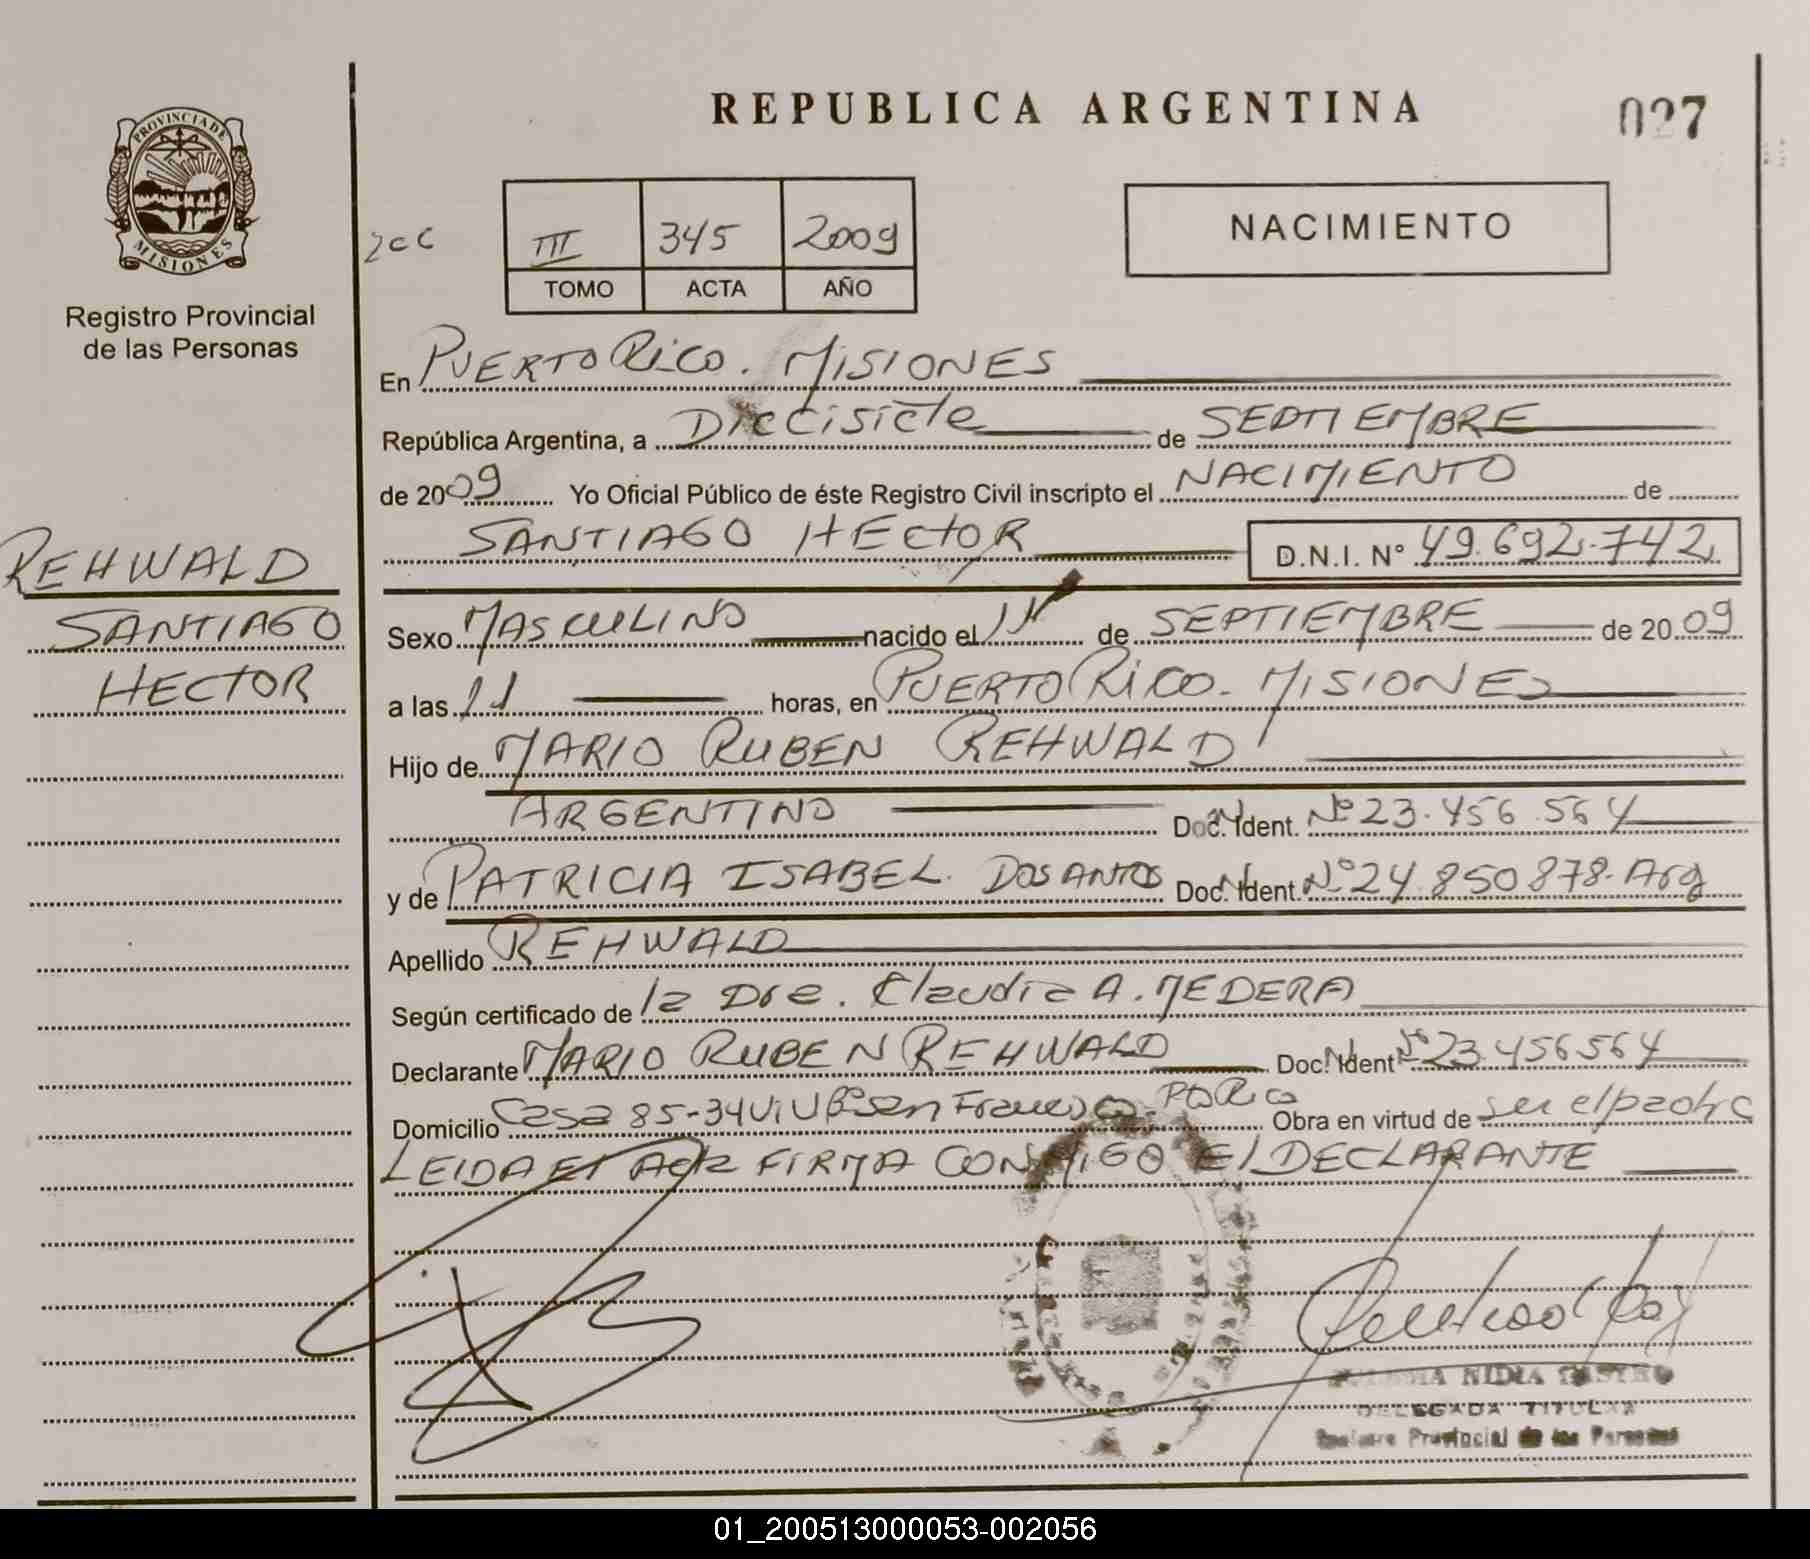 REPUBLICA ARGENTINA
027
PROVINCIA DE
MISIONES
Registro Provincial
de las Personas
NACIMIENTO
III 345 2009
TOMO ACTA AÑO
En PUERTO RICO. MISIONES
República Argentina, a Diecisiete de SEPTIEMBRE
de 2009 Yo Oficial Público de éste Registro Civil inscripto el NACIMIENTO de
SANTIAGO HECTOR D.N.I. N° 49.692.742
REHWALD
SANTIAGO
HECTOR
Sexo MASCULINO nacido el de SEPTIEMBRE de 2009
a las 11 horas, en PUERTO RICO. MISIONES
Hijo de MARIO RUBEN REHWALD
ARGENTINO Doc. Ident. Nº 23.456.564
y de PATRICIA ISABEL DOSANTOS Doc. Ident. Nº 24.850878. Arg
Apellido REHWALD
Según certificado de la Dra. Claudia A. MEDERA
Declarante MARIO RUBEN REHWALD Doc. Ident Nº 23.456564
Domicilio Casa 85-34 Viv Bº San Francisco. Pto Rico Obra en virtud de ser el padre
LEIDA El Acta FIRMA CONMIGO El DECLARANTE
NIDIA CASTRO
DELEGADA TITULAR
Registro Provincial de las Personas
01_200513000053-002056